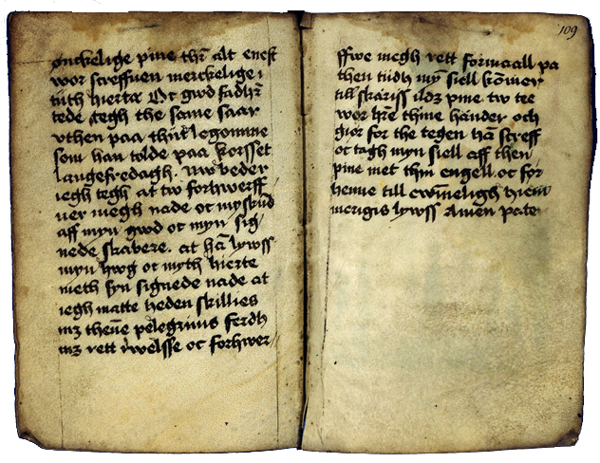 ønckelige pine thr̄ alt enest
wor screffuen merckelige i
tith hierta Oc gwd fadhr̄
tede tegh the same saar
vthen paa thit legomme
som han tolde paa korsset
langefredagh. Nw beder
iegh tegh at tw forhwerff
uer megh nade oc myskund
aff myn gwd oc myn sig/
nede skabere. at hā lywss
myn hwg oc myth hierte
meth syn signede nade at
iegh matte heden skillies
mꝫ thenē pelegrims ferdh
mꝫ rett rwelsse oc forhwer/
109
ffwe megh rett formaall pa
then tiidh my̅ siell ko̅mer
till skariss ildꝫ pine tw tee
wor hr̄e thine hander och
gior for the tegen ha̅ screff
oc tagh myn siell aff then
pine met thin engell oc før
henne till ewi̅neligh hiem
merigis lywss Amen pate